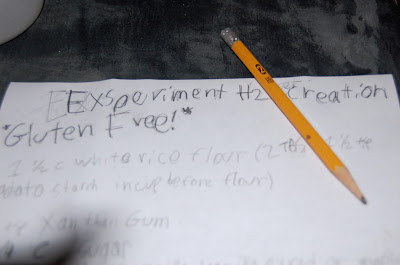 Exsperiment #2 of Creation
*Gluten Free!*
1 ½ c white rice flour (2 1 ½
tato starch in cup before flour)
tsp Xanthan Gum
c sugar